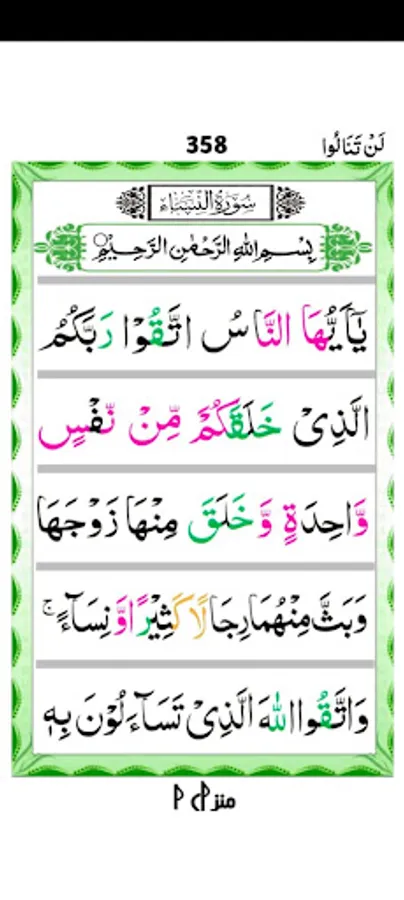 358 لَنْ تَنَالُوا
سُوْرَةُ النِّسَآءِ
بِسْمِ اللّٰهِ الرَّحْمٰنِ الرَّحِيْمِ
يٰۤاَيُّهَا النَّاسُ اتَّقُوْا رَبَّكُمُ
الَّذِىْ خَلَقَكُمْ مِّنْ نَّفْسٍ
وَّاحِدَةٍ وَّ خَلَقَ مِنْهَا زَوْجَهَا
وَبَثَّ مِنْهُمَا رِجَالًا كَثِيْرًا وَّ نِسَآءً ۚ
وَاتَّقُوا اللّٰهَ الَّذِىْ تَسَآءَلُوْنَ بِهٖ
منزل ۱